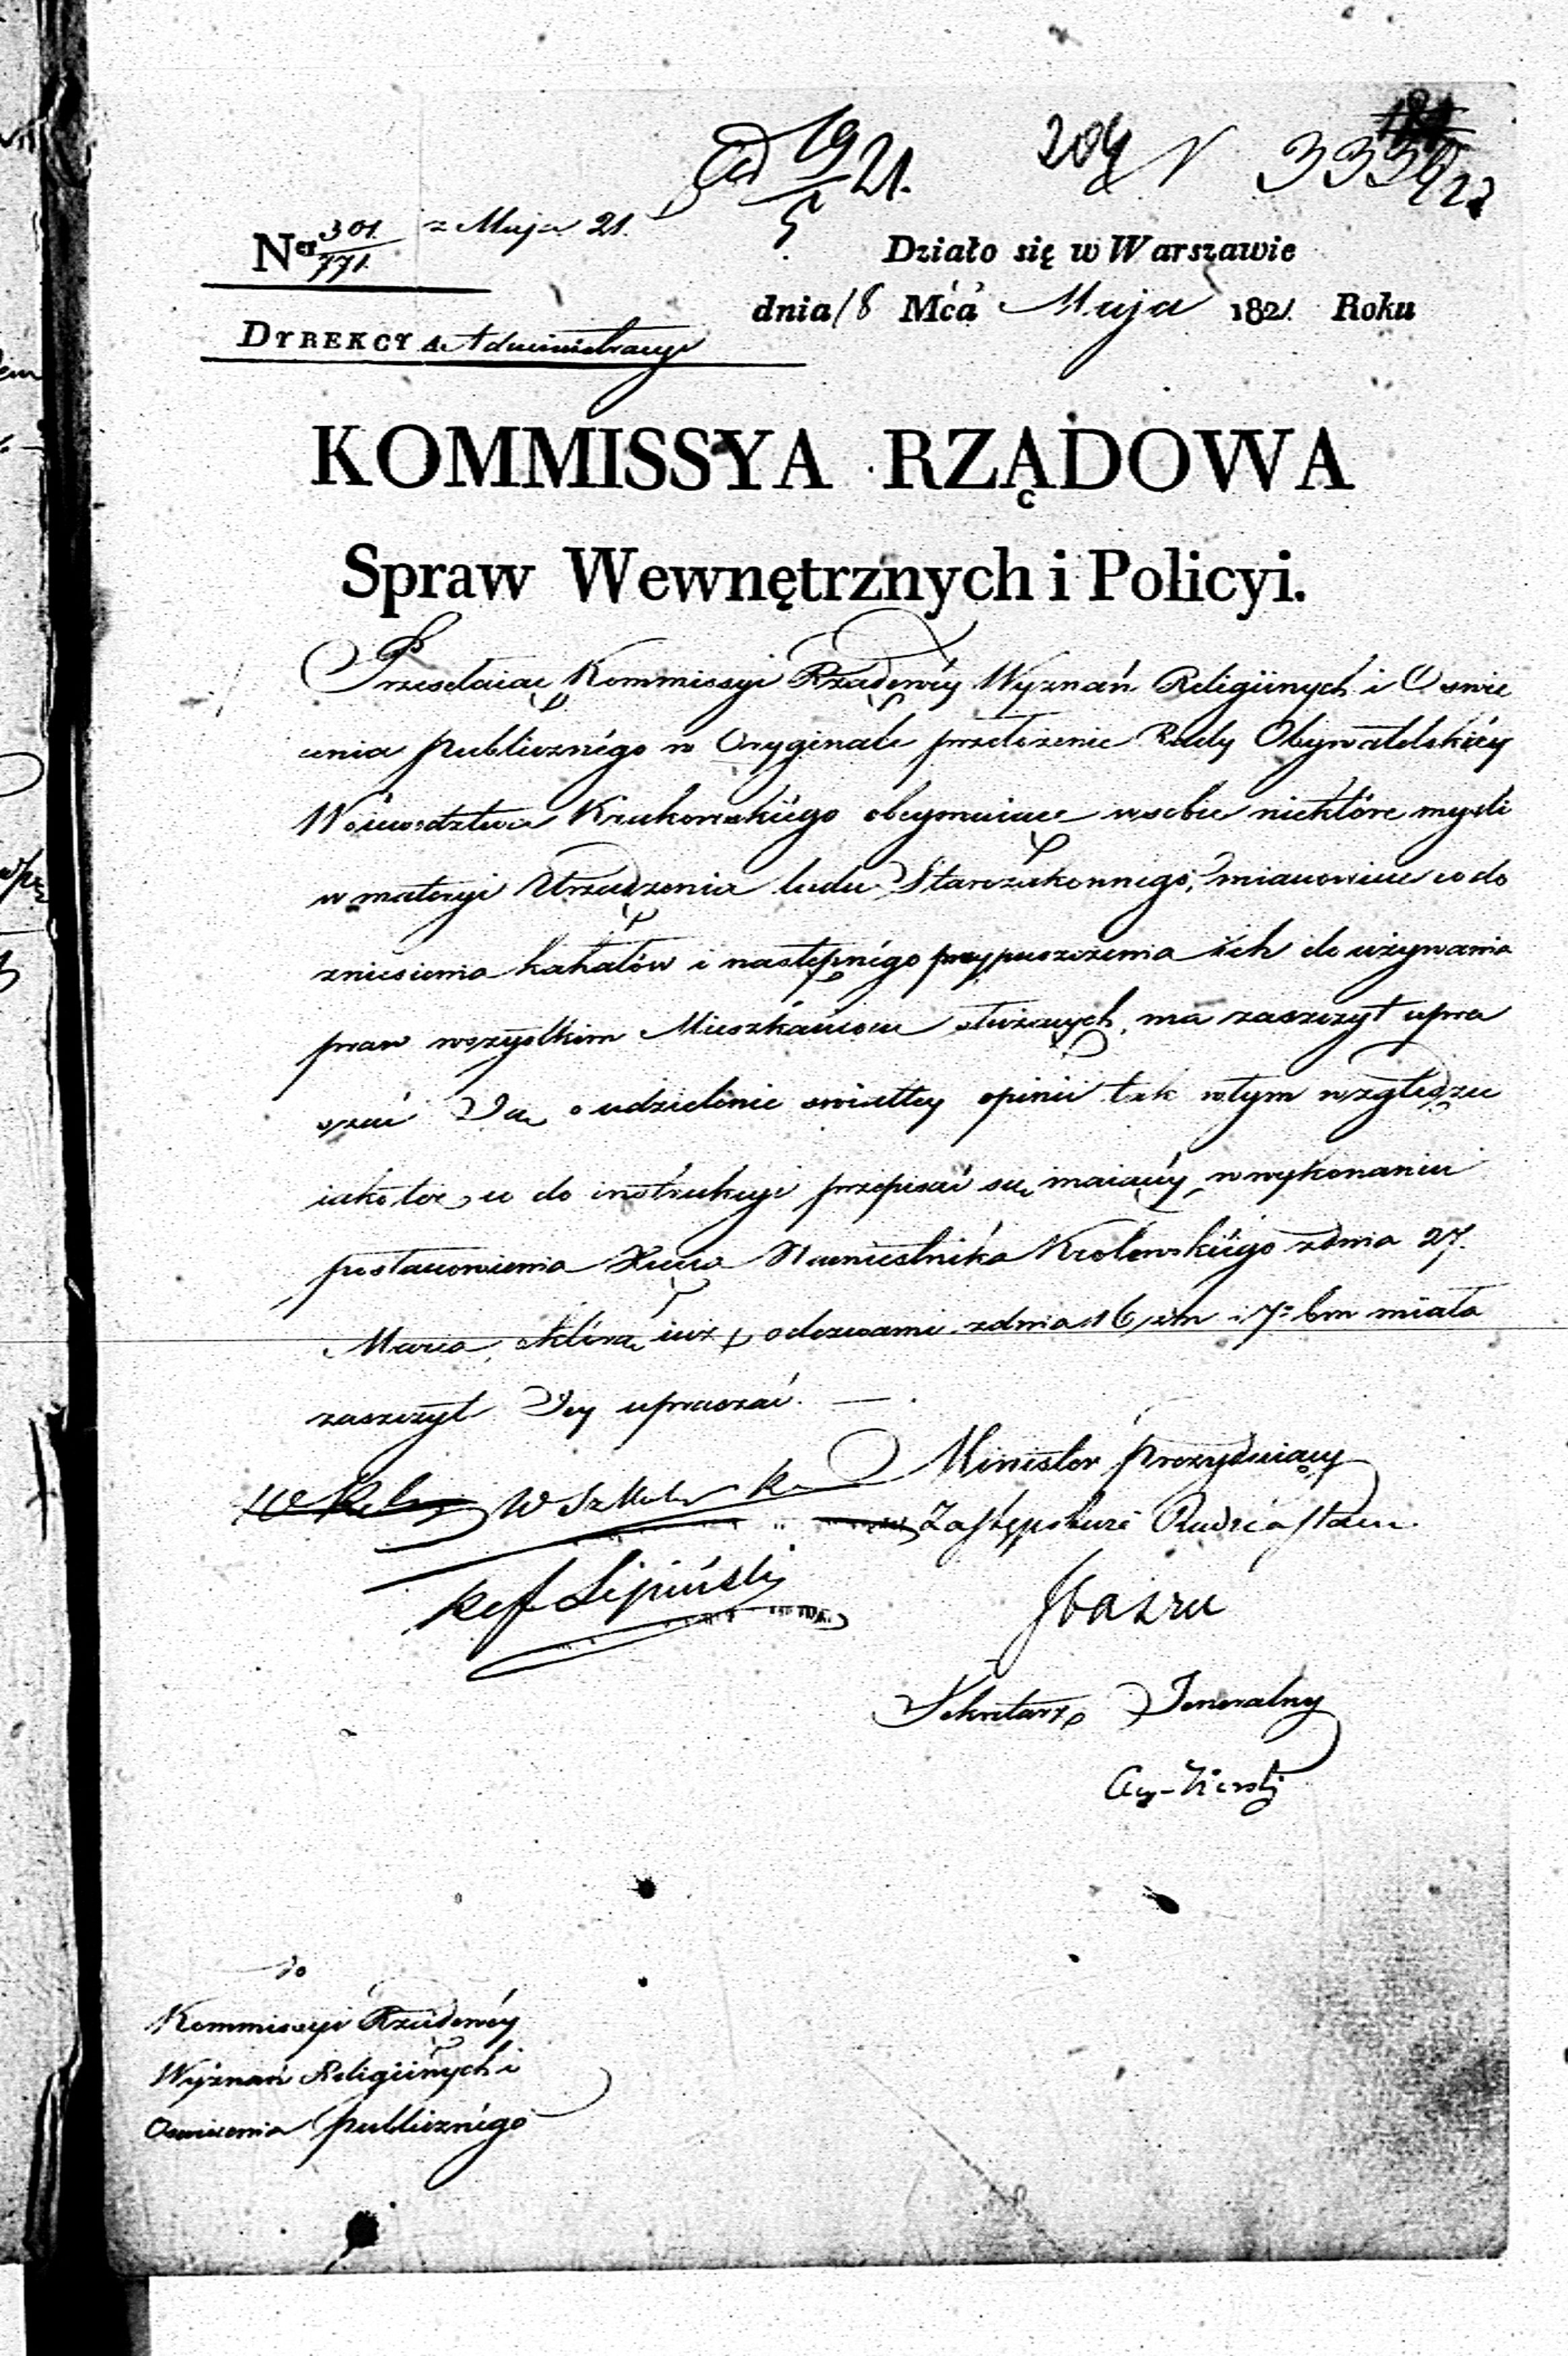 19/5 21. 204 N 3339
Ner 301/771. z Maja 21.
Działo się w Warszawie
dnia 18 Mća Maja 1821. Roku
DYREKCYA Administracyi
KOMMISSYA RZĄDOWA
Spraw Wewnętrznych i Policyi.
Przesełaiąc Kommissyi Rządowéy Wyznań Religiinych i Oswie
cenia publicznégo w Oryginale przełożenie Rady Obywatelskiéy
Woiewodztwa Krakowskiégo obeymuiące w sobie niektóre mysli
w materyi Urządzenia ludu Starozakonnego, mianowicie co do
zniesienia kahałów i następnégo przypuszczenia ich do używania
praw wszystkim Mieszkańcom służących, ma zaszczyt upra
szać Ią o udzielenie swiatłey opinii tak w tym względzie
iako też, co do instrukcyi przepisać się maiącéy, w wykonaniu
postanowienia Xięcia Namiestnika Krolewskiégo z dnia 27.
Marca, o którą iuż odezwami z dnia 16 i 7 bm miała
zaszczyt Iey upraszać.
Minister Prezyduiący
Zastępca Radca Stanu
Ref Lipiński
Sekretarz Jeneralny
do
Kommissyi Rządowéy
Wyznań Religiinych i
Oswiecenia publicznégo